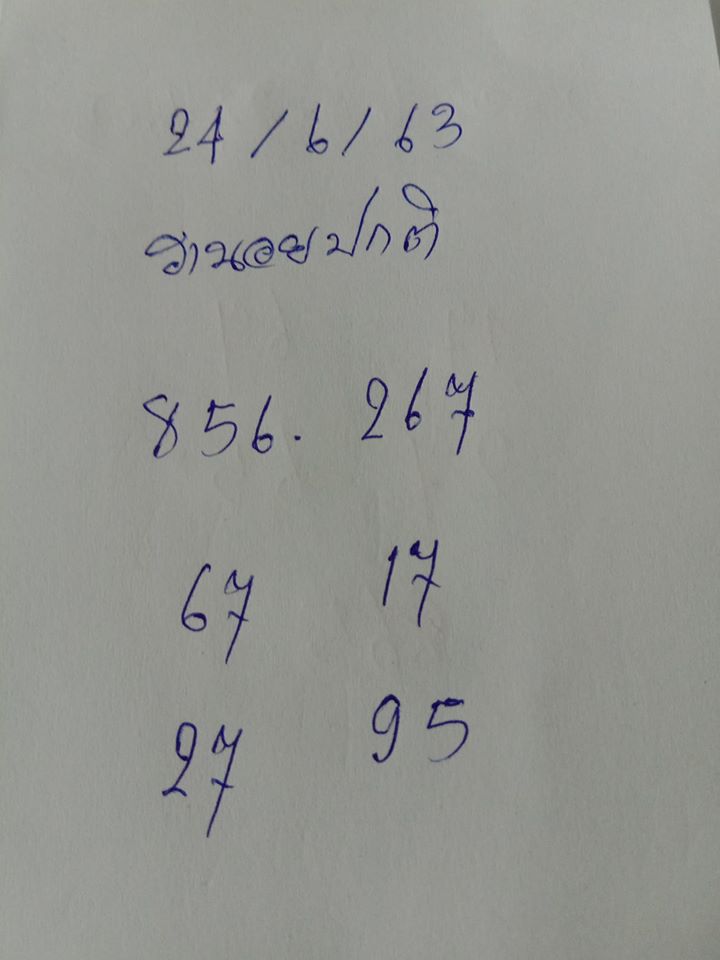 24/6/63
ฮานอยปกติ
856. 267
67 17
27 95